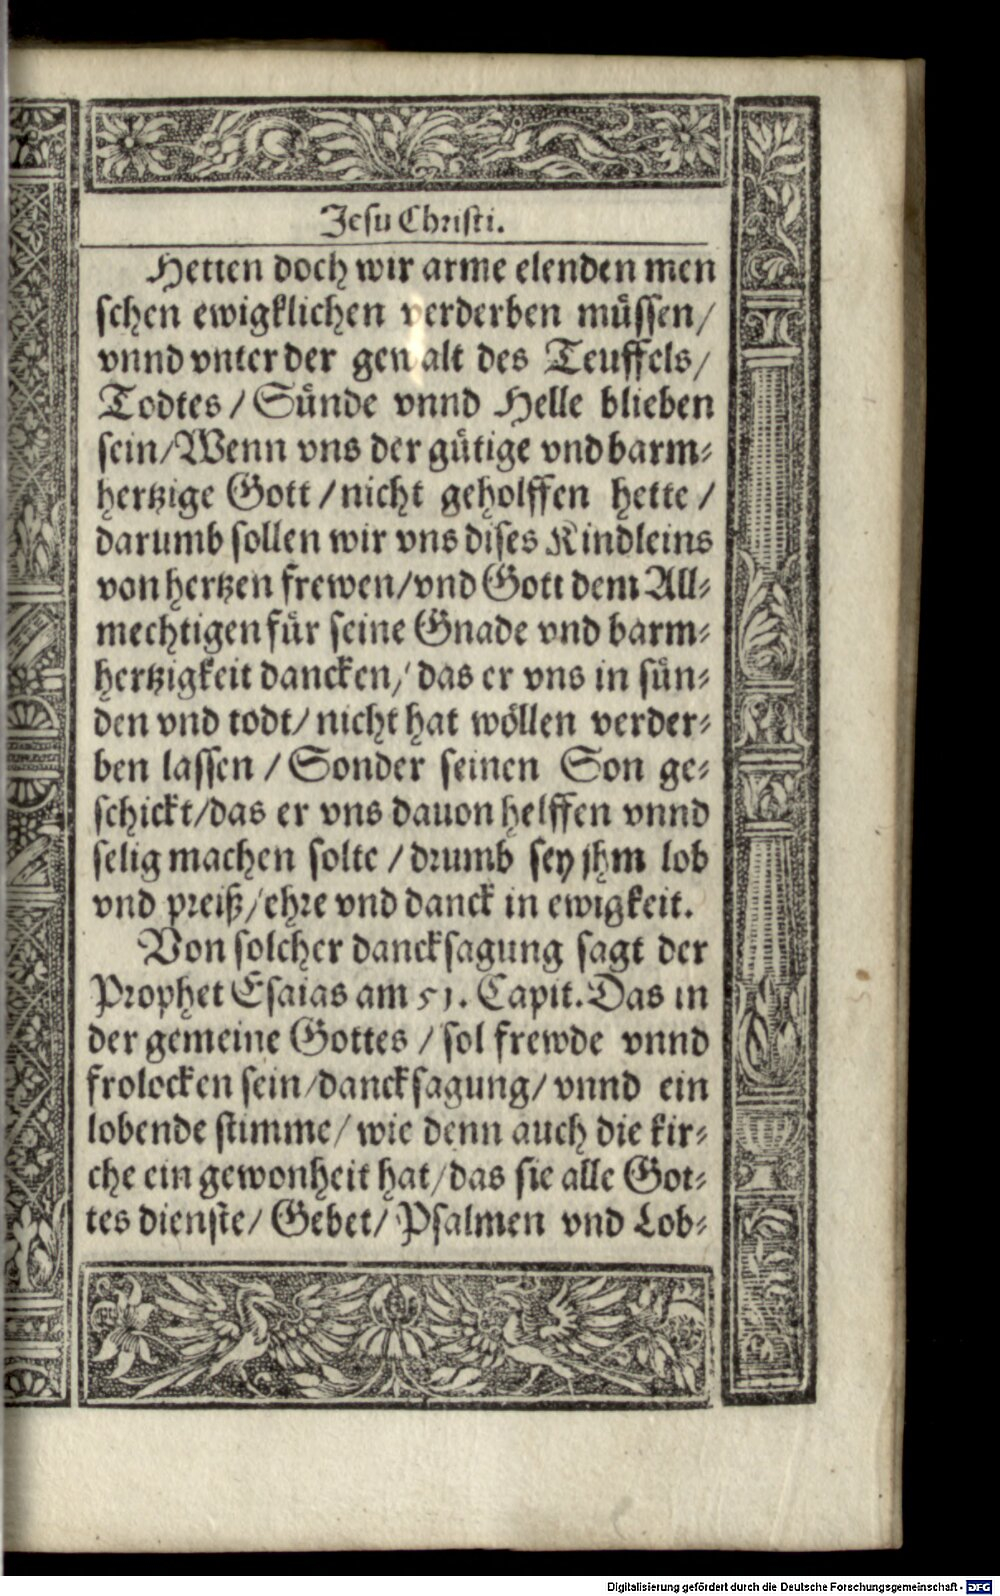 Jesu Christi.
Hetten doch wir arme elenden men
schen ewigklichen verderben müssen/
vnnd vnter der gewalt des Teuffels/
Todtes / Sünde vnnd Helle blieben
sein/Wenn vns der gütige vnd barm⸗
hertzige Gott / nicht geholffen hette /
darumb sollen wir vns dises Kindleins
von hertzen frewen/vnd Gott dem All⸗
mechtigen für seine Gnade vnd barm⸗
hertzigkeit dancken/ das er vns in sün⸗
den vnd todt/ nicht hat wöllen verder⸗
ben lassen / Sonder seinen Son ge⸗
schickt/das er vns dauon helffen vnnd
selig machen solte / drumb sey jhm lob
vnd preiß/ ehre vnd danck in ewigkeit.
Von solcher dancksagung sagt der
Prophet Esaias am 51. Capit. Das in
der gemeine Gottes / sol frewde vnnd
frolocken sein/dancksagung/ vnnd ein
lobende stimme/ wie denn auch die kir⸗
che ein gewonheit hat/das sie alle Got⸗
tes dienste/ Gebet/ Psalmen vnd Lob⸗
Digitalisierung gefördert durch die Deutsche Forschungsgemeinschaft - DFG